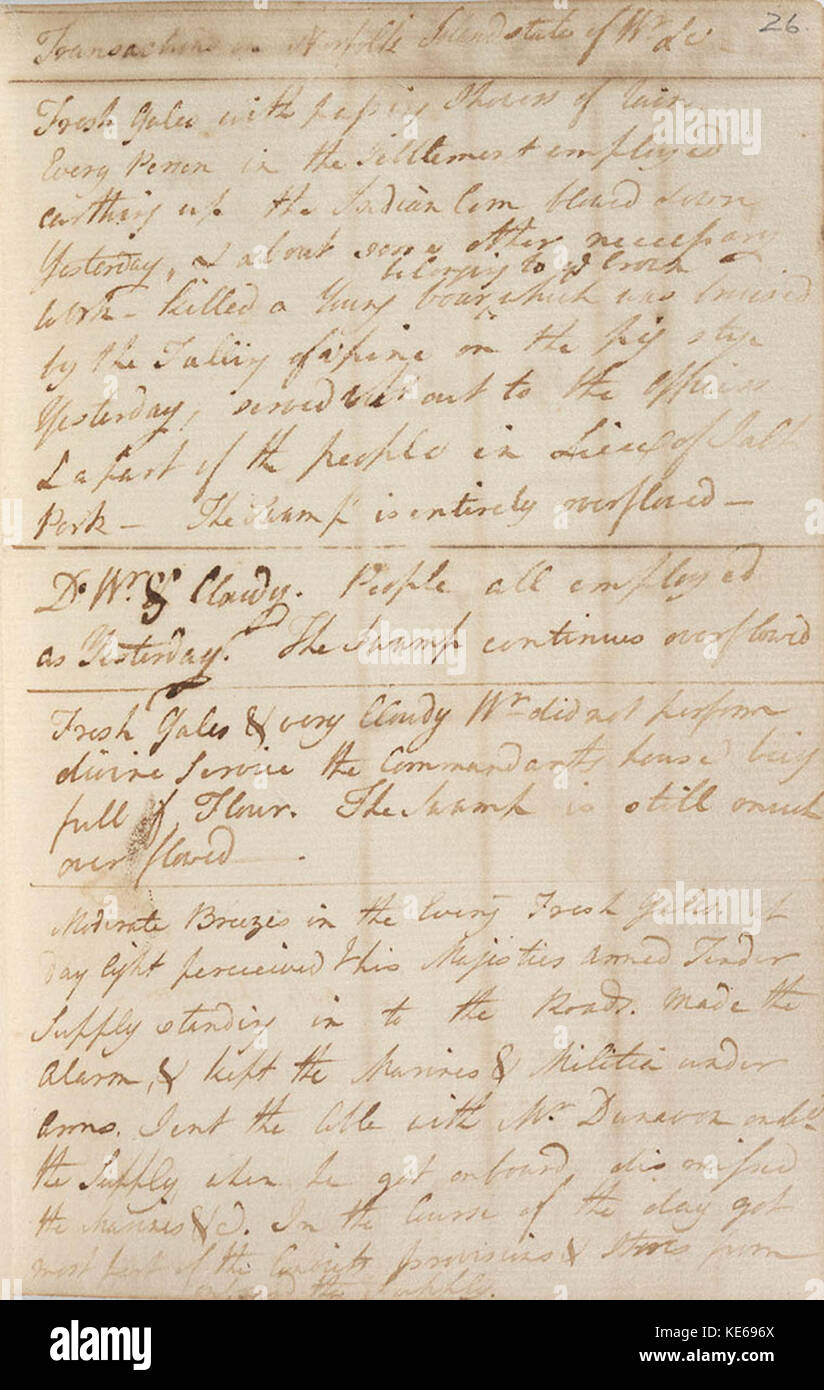 26.
Transactions on Norfolk Island state of Wr. &c.
Fresh Gales with passing Showers of rain
Every Person in the Settlement employed
earthing up the Indian Corn blowed down
Yesterday, & about some other necessary
belonging to ye Crown
Work - killed a Young boar, which was bruised
by the falling of a pine on the pig stye
Yesterday, served out to the Officers
& a part of the people in Lieu of Salt
Pork - The Swamp is entirely overflowed -
Do. Wr. & Cloudy. People all employed
as Yesterday. The Swamp continues overflowed
Fresh Gales & very Cloudy Wr. did not perform
divine Service the Commandants house being
full of Flour. The Swamp is still much
overflowed - .
Moderate Breezes in the Eveng Fresh Gales at
day light perceived His Majesties armed Tender
Supply standing in to the Roads. Made the
Alarm, & kept the Marines & Militia under
Arms. Sent the Coble with Mr. Dunavon onbd.
the Supply when he got onboard, dismissed
the Marines &c. In the Course of the day got
most part of the Convicts provisions & Stores from
onboard the Supply.
alamy
alamy
Image ID: KE696X
www.alamy.com